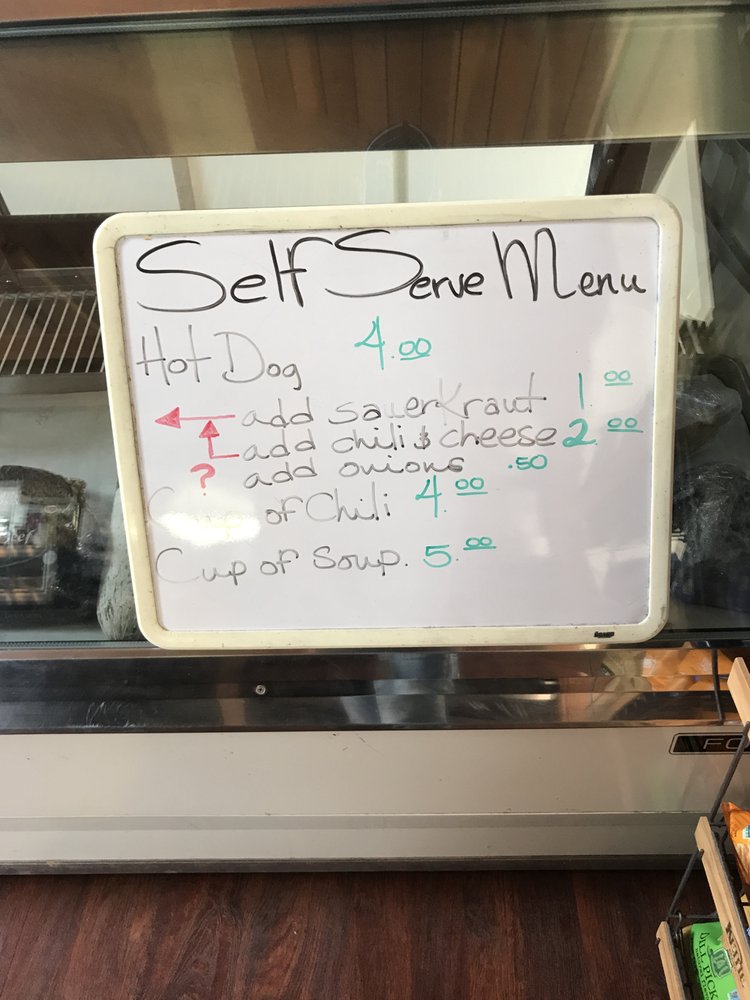 Self Serve Menu
Hot Dog 4.00
add sauerkraut 1 00
add chili & cheese 2 00
? add onions .50
Cup of Chili 4.00
Cup of Soup. 5.00
DILL PICK